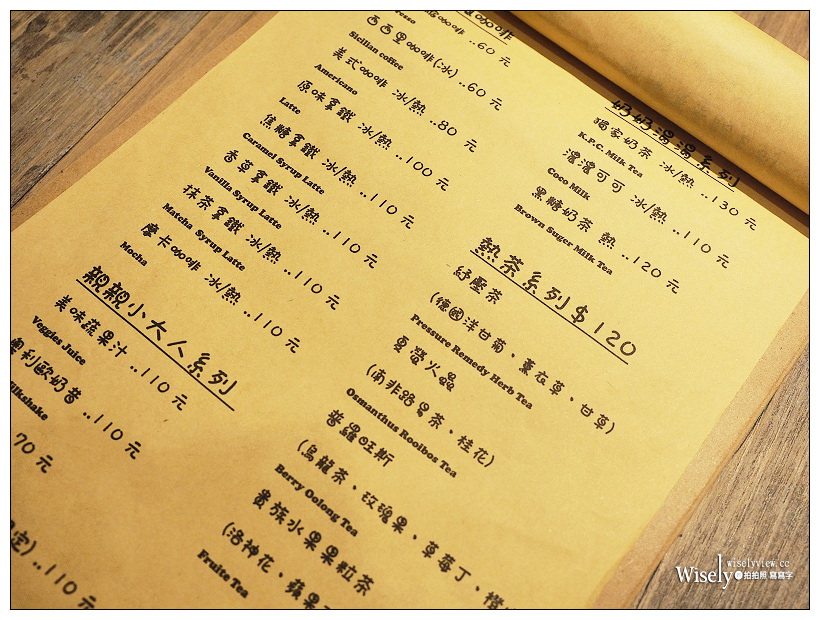 60 元
Sicilian coffee
西西里咖啡(冰) ..60 元
Americano
美式咖啡 冰/熱 ..80 元
Latte
原味拿鐵 冰/熱 ..100 元
Caramel Syrup Latte
焦糖拿鐵 冰/熱 ..110 元
Vanilla Syrup Latte
香草拿鐵 冰/熱 ..110 元
Matcha Syrup Latte
抹茶拿鐵 冰/熱 ..110 元
Mocha
摩卡咖啡 冰/熱 ..110 元
親親小大人系列
美味蔬果汁 ..110 元
Veggies Juice
奧利歐奶昔 ..110 元
70 元
..110 元
奶奶濃濃系列
獨家奶茶 冰/熱 ..130 元
K.F.C. Milk Tea
濃濃可可 冰/熱 ..110 元
Coco Milk
黑糖奶茶 熱 ..120 元
Brown Suger Milk Tea
熱茶系列$120
紓壓茶
(德國洋甘菊、薰衣草、甘草)
Pressure Remedy Herb Tea
夏螢火晶
(南非路易茶、桂花)
Osmanthus Rooibos Tea
普羅旺斯
(烏龍茶、玫瑰果、草莓丁、橙
Berry Oolong Tea
貴族水果果粒茶
(洛神花、蘋果
Fruite Tea
Wisely
wiselyview.cc
拍拍照.寫寫字